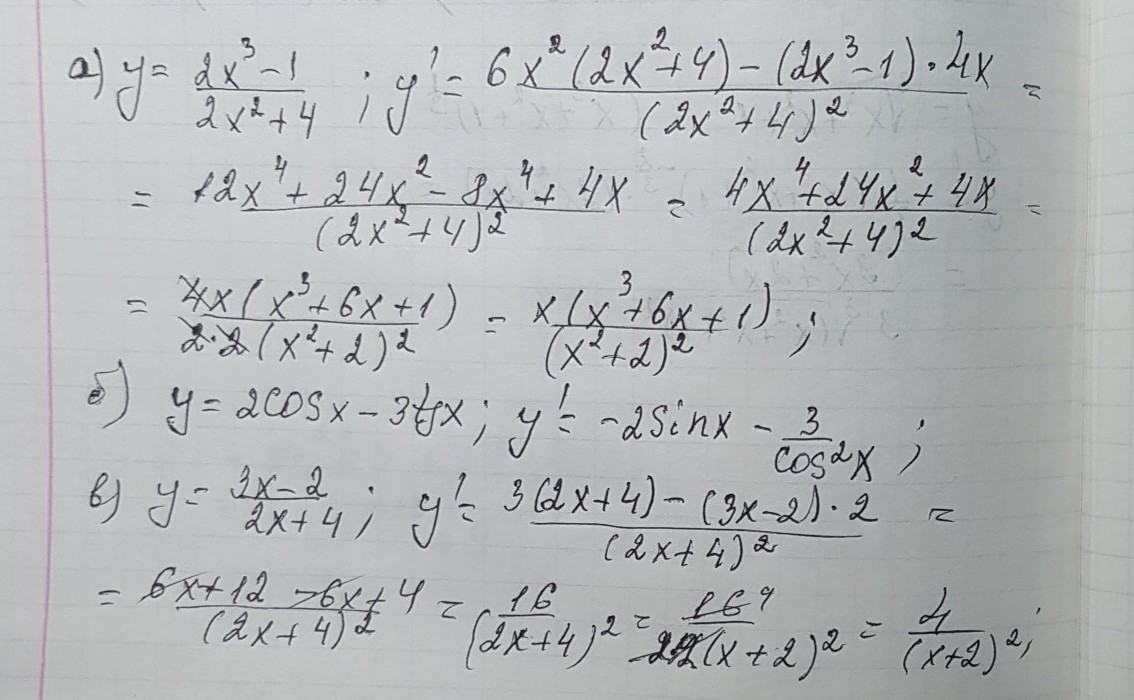 а) y = (2x³ − 1)/(2x² + 4) ; y' = (6x²(2x² + 4) − (2x³ − 1) · 4x)/(2x² + 4)² =
= (12x⁴ + 24x² − 8x⁴ + 4x)/(2x² + 4)² = (4x⁴ + 24x² + 4x)/(2x² + 4)² =
= 4x(x³ + 6x + 1)/(2·2(x² + 2)²) = x(x³ + 6x + 1)/(x² + 2)² ;
б) y = 2cosx − 3tgx ; y' = −2sinx − 3/cos²x ;
в) y = (3x − 2)/(2x + 4) ; y' = (3(2x + 4) − (3x − 2) · 2)/(2x + 4)² =
= (6x + 12 − 6x + 4)/(2x + 4)² = 16/(2x + 4)² = 16 4/(2·2(x + 2)²) = 4/(x + 2)² ;